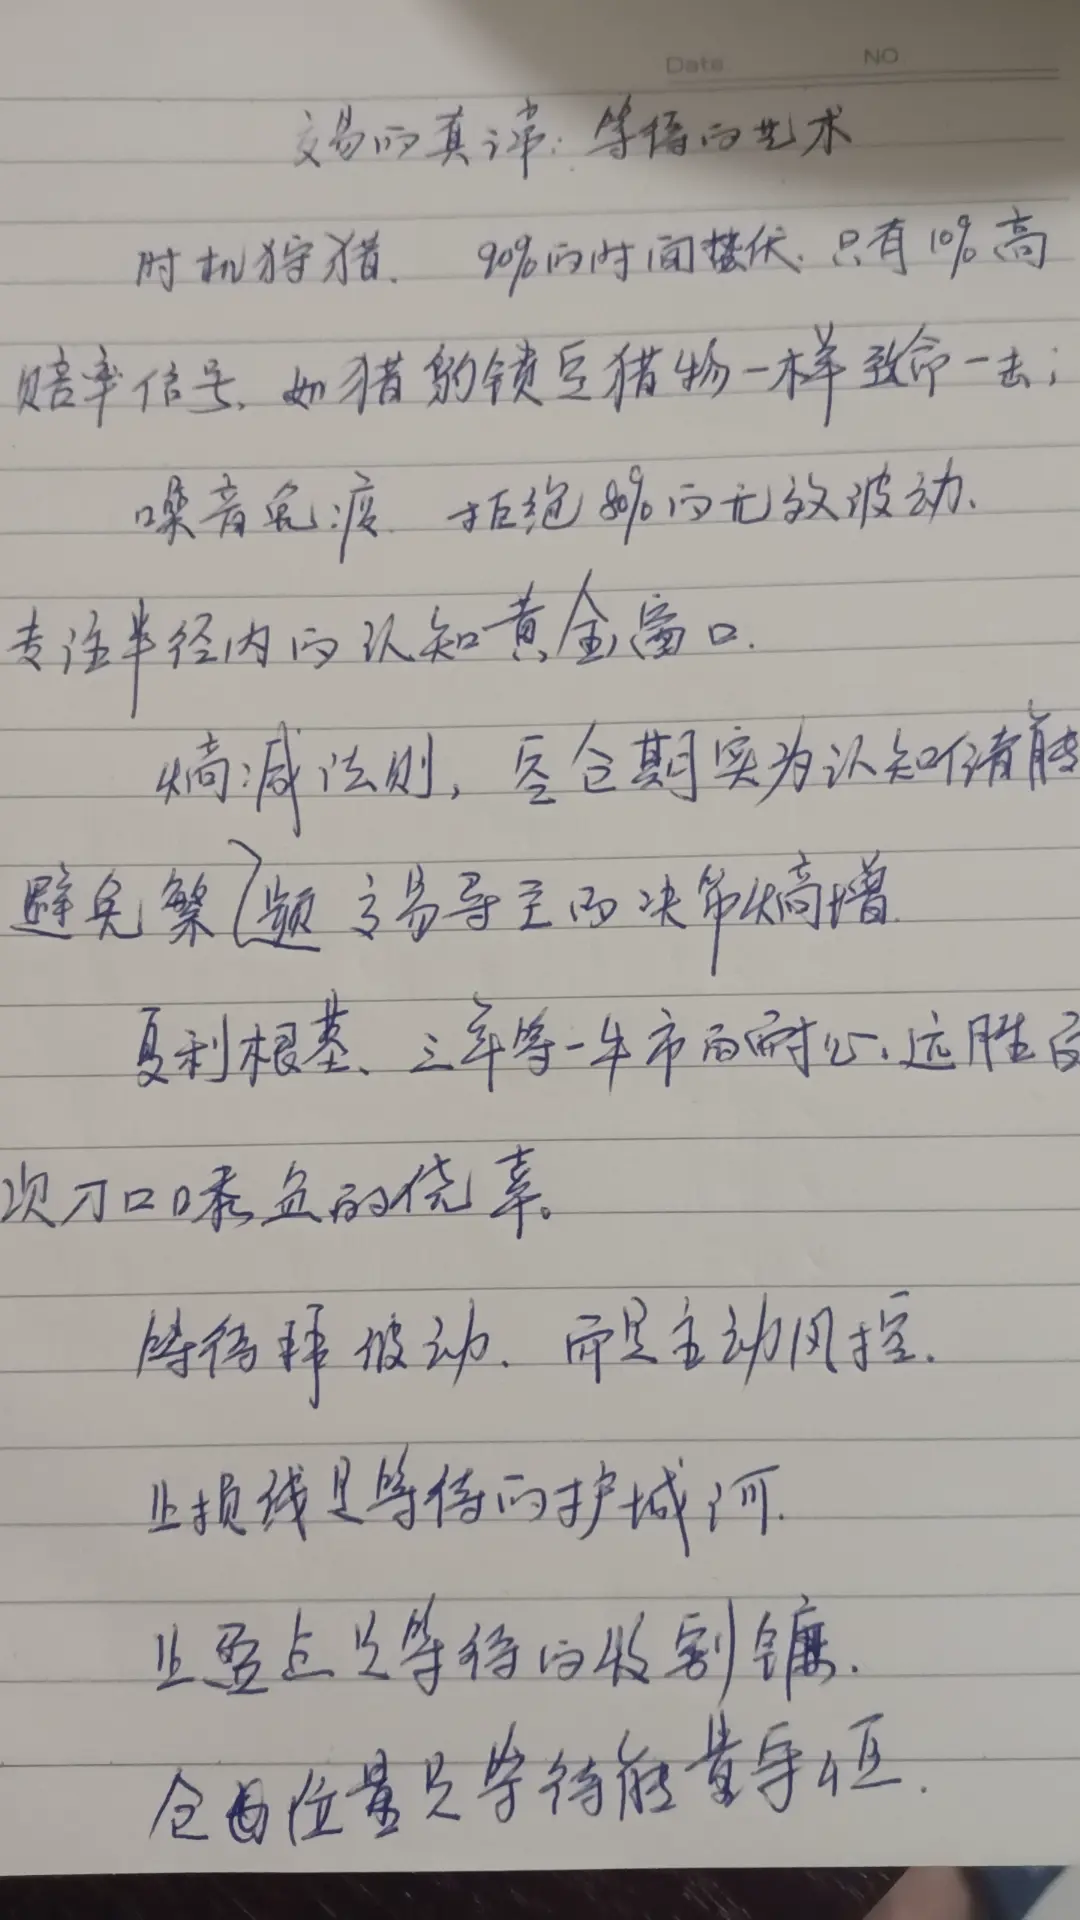 Date NO
交易的真谛：等待的艺术
时机狩猎. 90%的时间蛰伏、只有10%高
赔率信号、如猎豹锁定猎物一样致命一击；
噪音免疫 拒绝80%的无效波动.
专注半径内的认知黄金窗口.
熵减法则，空仓期实为认知储
避免繁频交易导至的决策熵增
复利根基、三年等一牛市的耐心、远胜百
次刀口舔血的侥幸。
等待非被动、而是主动风控.
止损线是等待的护城河.
止盈点是等待的收割镰.
仓位量是等待能量守恒.